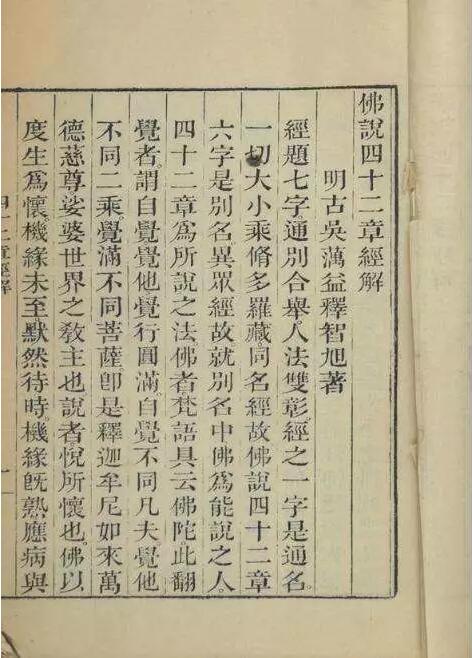 佛說四十二章經解
明古吳蕅益釋智旭著
經題七字通別合舉。人法雙彰。經之一字是通名。
一切大小乘脩多羅藏同名經故。佛說四十二章
六字是別名。異眾經故。就別名中佛為能說之人。
四十二章為所說之法。佛者梵語具云佛陀。此翻
覺者。謂自覺覺他覺行圓滿。自覺不同凡夫。覺他
不同二乘。覺滿不同菩薩。卽是釋迦牟尼如來萬
德慈尊娑婆世界之教主也。說者悅所懷也。佛以
度生為懷。機緣未至默然待時。機緣旣熟應病與
四十二章經解
一